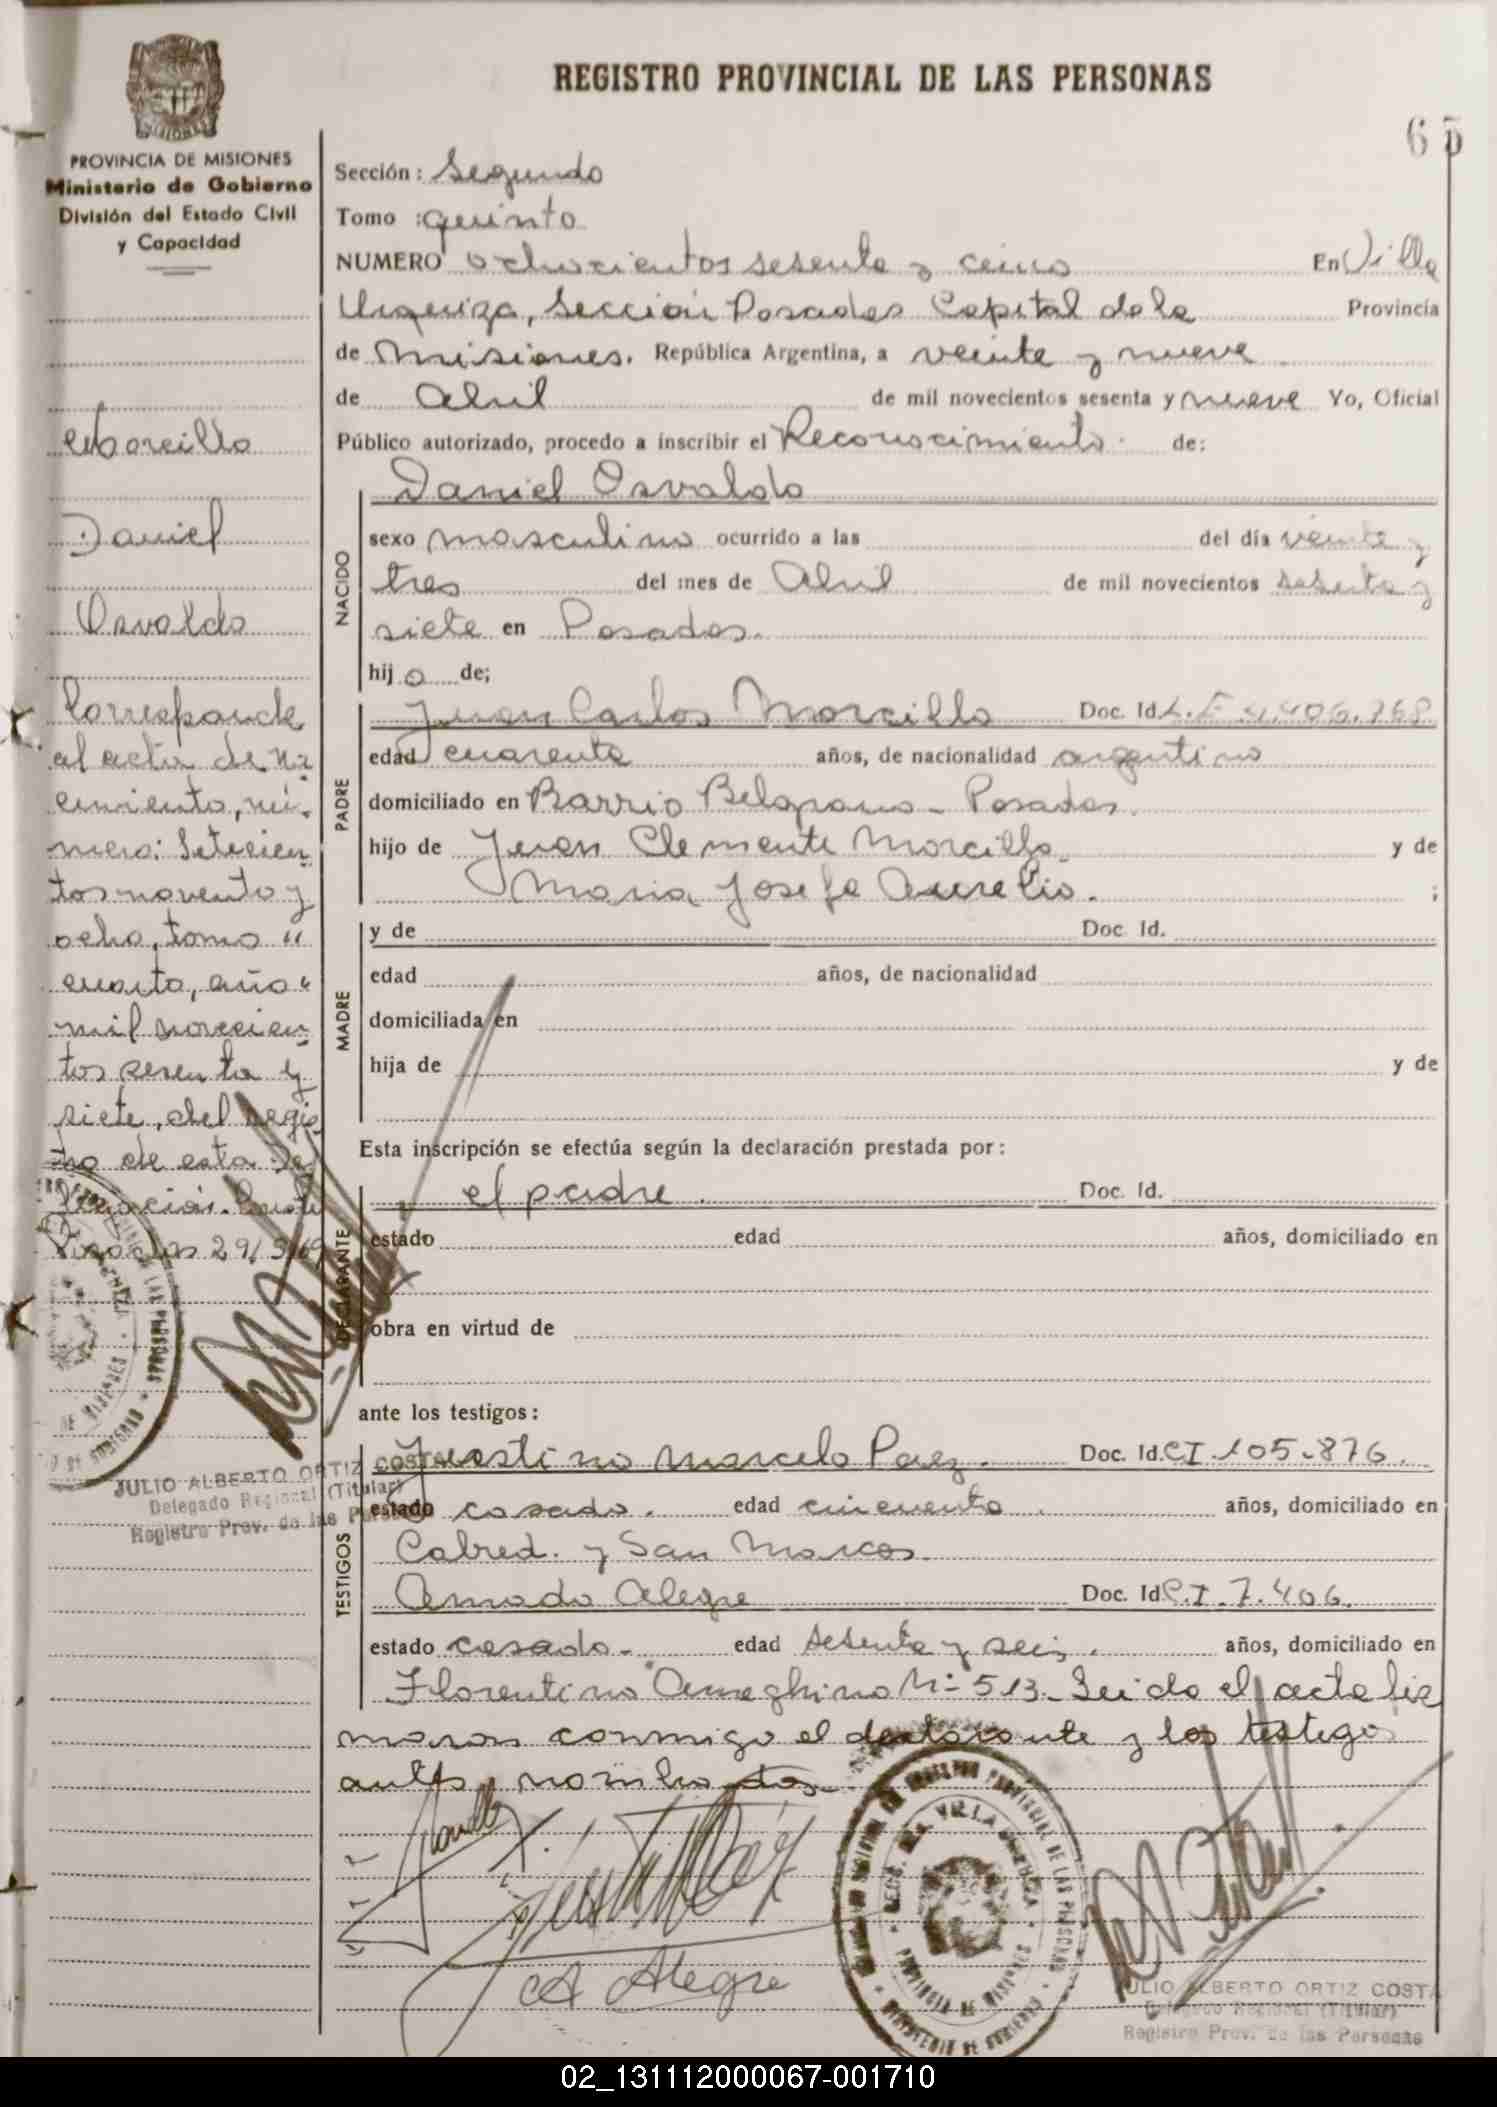 REGISTRO PROVINCIAL DE LAS PERSONAS
65
MISIONES
PROVINCIA DE MISIONES
Ministerio de Gobierno
División del Estado Civil
y Capacidad
Morcillo
Daniel
Osvaldo
Corresponde
al acta de na
cimiento, nú-
mero: Setecien
tos noventa y
ocho, tomo "
cuarto, año "
mil novecien
tos sesenta y
siete, del regis
tro de esta De
legación. Conste
Posadas 29/
JULIO ALBERTO ORTIZ COSTA
Delegado Regional (Titular)
Registro Prov. de las Personas
Sección: Segundo
Tomo : quinto
NUMERO ochocientos sesenta y cinco En Villa
Urquiza, Sección Posadas Capital de la Provincia
de Misiones. República Argentina, a veinte y nueve
de Abril de mil novecientos sesenta y nueve Yo, Oficial
Público autorizado, procedo a inscribir el Reconoscimiento de:
Daniel Osvaldo
NACIDO
sexo masculino ocurrido a las del día veinte y
tres del mes de Abril de mil novecientos sesenta y
siete en Posadas.
hijo de;
PADRE
Juan Carlos Morcillo Doc. Id. L.E 4.406.768
edad cuarenta años, de nacionalidad argentino
domiciliado en Barrio Belgrano - Posadas.
hijo de Juan Clemente Morcillo y de
Maria Josefa Aurelio. ;
MADRE
y de Doc. Id.
edad años, de nacionalidad
domiciliada en
hija de y de
Esta inscripción se efectúa según la declaración prestada por:
DECLARANTE
el padre. Doc. Id.
estado edad años, domiciliado en
obra en virtud de
ante los testigos:
TESTIGOS
Justino Marcelo Paez. Doc. Id. CI 105.876.
estado casado. edad cincuenta. años, domiciliado en
Cabred. y San Marcos
Amado Alegre Doc. Id. C.I. 7.406.
estado casado- edad sesenta y seis. años, domiciliado en
Florentino Ameghino Nº 513- Leido el acta fir
maron conmigo el declarante y los testigos
antes nombrados-
A Alegre
REGISTRO PROVINCIAL DE LAS PERSONAS
VILLA URQUIZA
PROVINCIA DE MISIONES
MINISTERIO DE GOBIERNO
JULIO ALBERTO ORTIZ COSTA
Delegado Regional (Titular)
Registro Prov. de las Personas
02_131112000067-001710